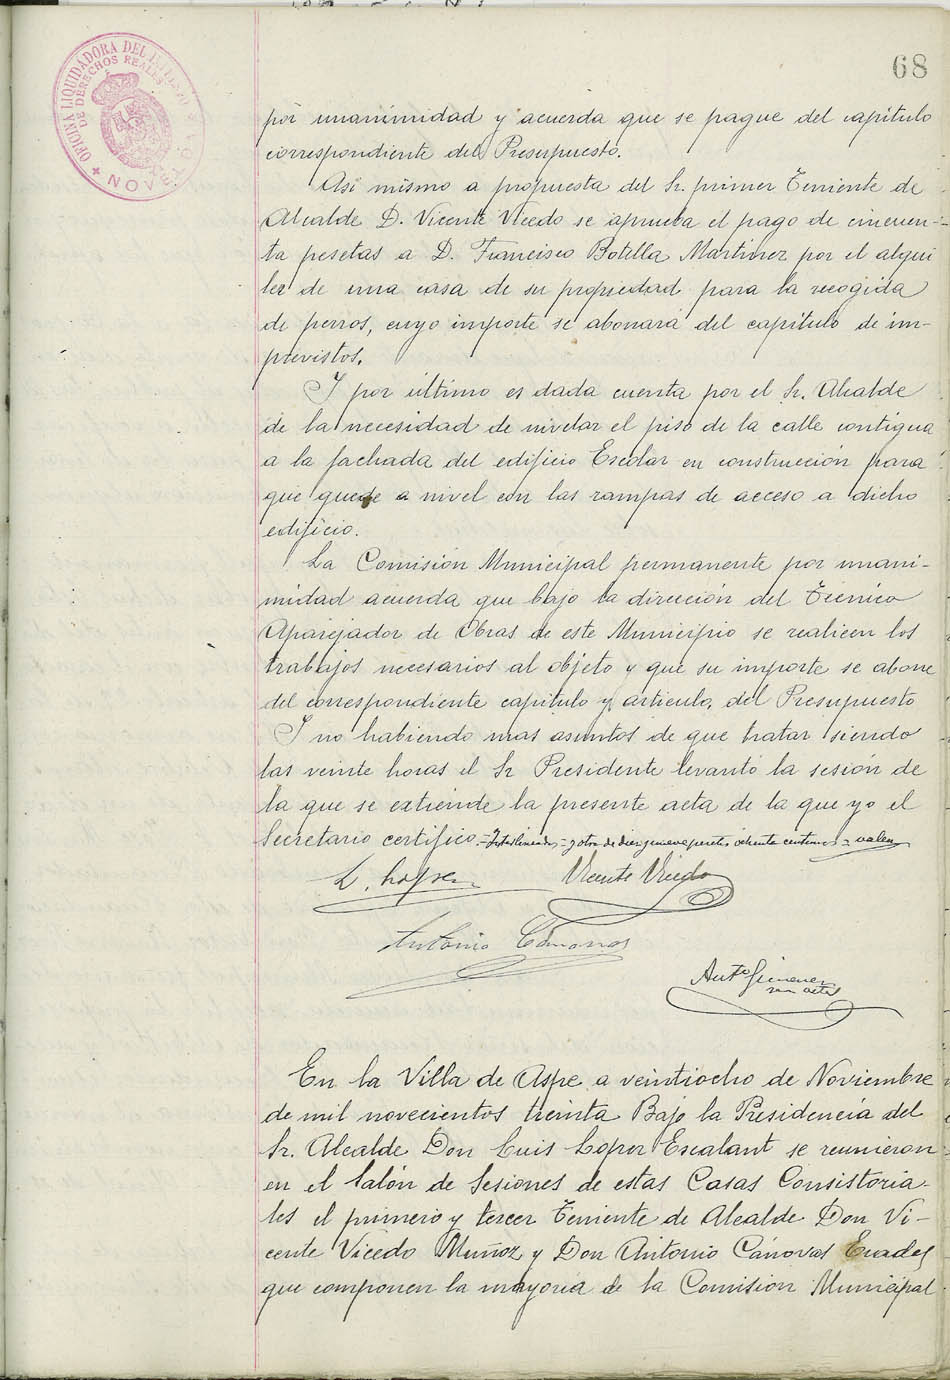 68
OFICINA LIQUIDADORA DEL
DE DERECHOS REALES
por unanimidad y acuerda que se pague del capitulo
correspondiente del Presupuesto.
Asi mismo a propuesta del Sr. primer Teniente de
Alcalde D. Vicente Vicedo se aprueba el pago de cincuen-
ta pesetas a D. Francisco Botella Martinez por el alqui
ler de una casa de su propiedad para la recogida
de perros, cuyo importe se abonará del capitulo de im-
previstos.
Y por último es dada cuenta por el Sr. Alcalde
de la necesidad de nivelar el piso de la calle contigua
a la fachada del edificio Escolar en construcción para
que quede a nivel con las rampas de acceso a dicho
edificio.
La Comisión Municipal permanente por unani-
midad acuerda que bajo la dirección del Técnico
Aparejador de Obras de este Municipio se realicen los
trabajos necesarios al objeto y que su importe se abone
del correspondiente capitulo y articulo, del Presupuesto
Y no habiendo mas asuntos de que tratar siendo
las veinte horas el Sr Presidente levantó la sesión de
la que se extiende la presente acta de la que yo el
Secretario certifico.=Interlineados = y otra de diez y nueve pesetas ochenta centimos = valen
L. López
Vicente Vicedo
Antonio Cánovas
Antº Gimenez
En la Villa de Aspe a veintiocho de Noviembre
de mil novecientos treinta Bajo la Presidencia del
Sr. Alcalde Don Luis Lopez Escalant se reunieron
en el Salón de Sesiones de estas Casas Consistoria-
les el primero y tercer Teniente de Alcalde Don Vi-
cente Vicedo Muñoz y Don Antonio Cánovas
que componen la mayoria de la Comisión Municipal